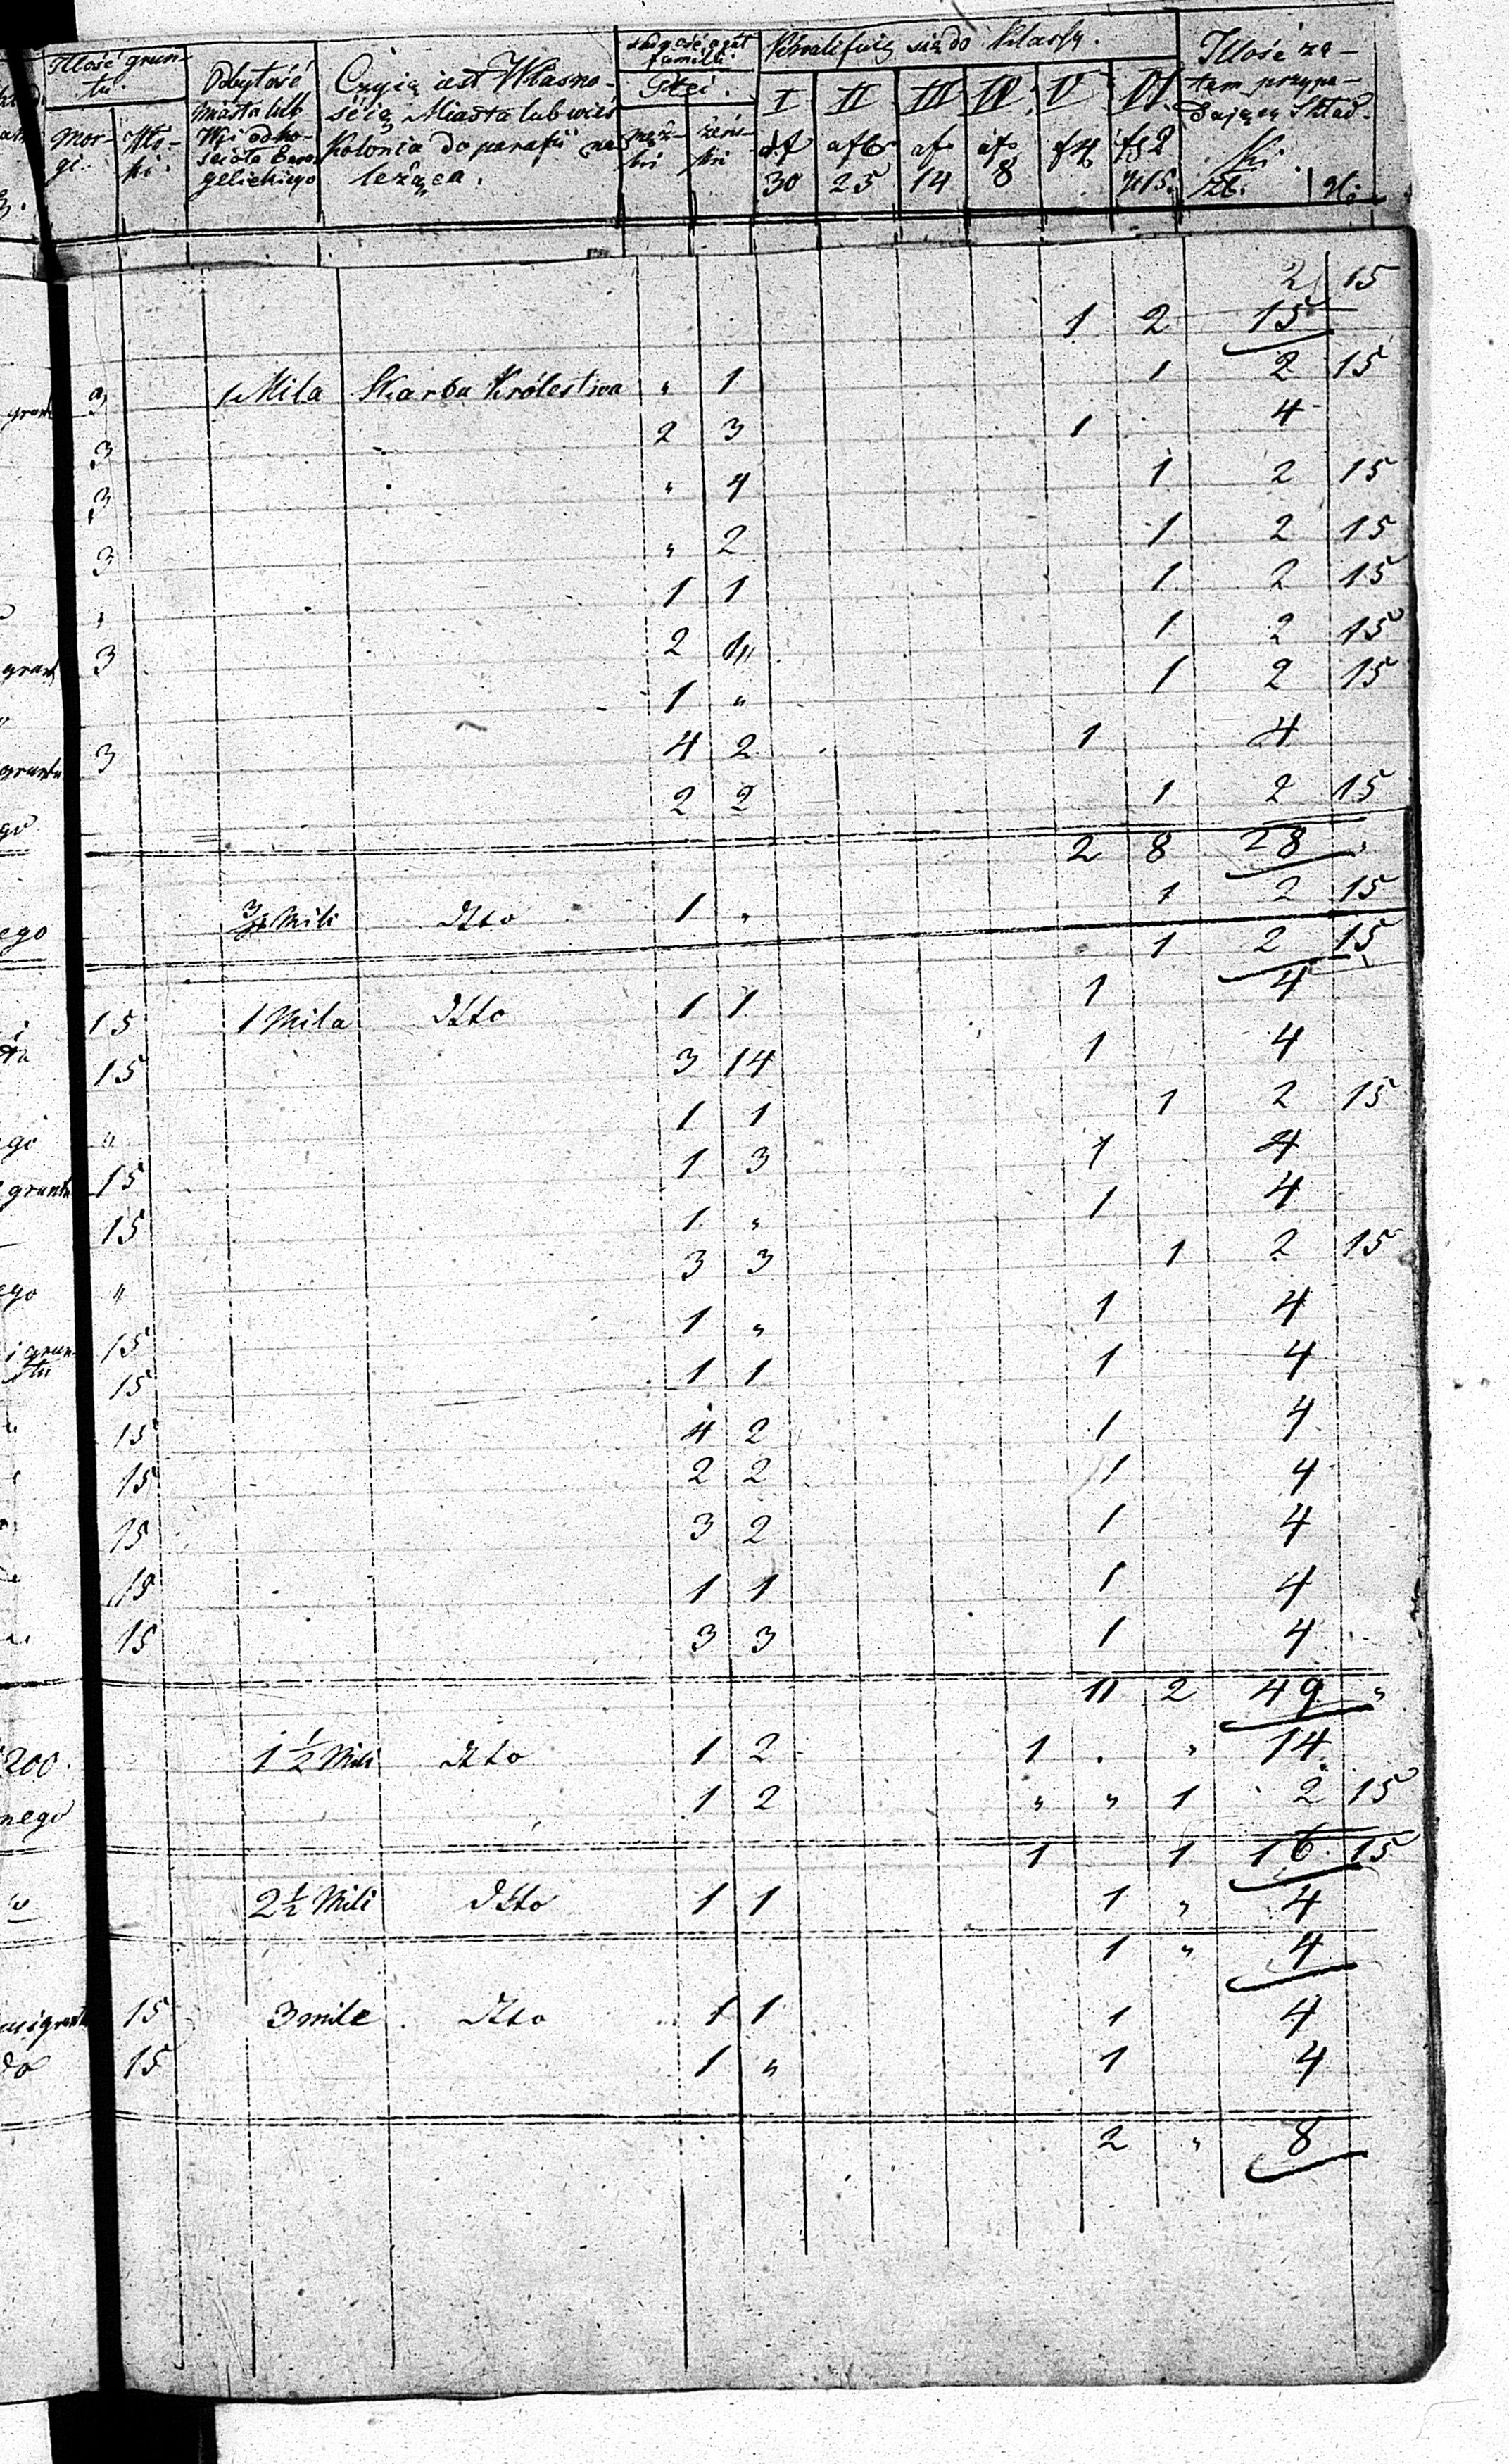 Ilość grun-
tu.
Mor-
gi.
Odległość
Miasta lub
Wsi od ko-
ścioła Ewan
gelickiego
Czyią iest Własno-
ścią Miasta lub wieś
Kolonia do parafii na
leżąca.
familii.
Płci.
męz-
ki
żeńs-
ki
Kwalifuią się do Klassy.
I II III IV V VI
30 25 14 8 f4 f 2
15.
Ilość za-
tem przypa-
dającey Skład-
ki
zł. gr
2 15
1 2 15
3 1 Mila Skarbu Królestwa " 1 1 2 15
3 2 3 1 4
3 " 4 1 2 15
3 " 2 1 2 15
" 1 1 1 2 15
3 2 " 1 2 15
1 " 1 2 15
3 4 2 1 4
2 2 1 2 15
2 8 28 "
ego 3/4 Mili Dtto 1 " 1 2 15
1 2 15
15 1 Mila Dtto 1 1 1 4
15 3 14 1 4
ego " 1 1 1 2 15
gruntu 15 1 3 1 4
15 1 " 1 4
ego " 3 3 1 2 15
i grun-
tu 15 1 " 1 4
15 1 1 1 4
15 4 2 1 4
15 2 2 1 4
15 3 2 1 4
15 1 1 1 4
15 3 3 1 4
11 2 49 "
200. 1 1/2 Mili Dtto 1 2 1 . " 14 "
nego 1 2 " " 1 2 15
1 1 16 15
2 1/2 Mili Dtto 1 1 1 " 4
1 " 4
15 3 mile Dtto 1 1 1 4
do 15 1 " 1 4
2 " 8